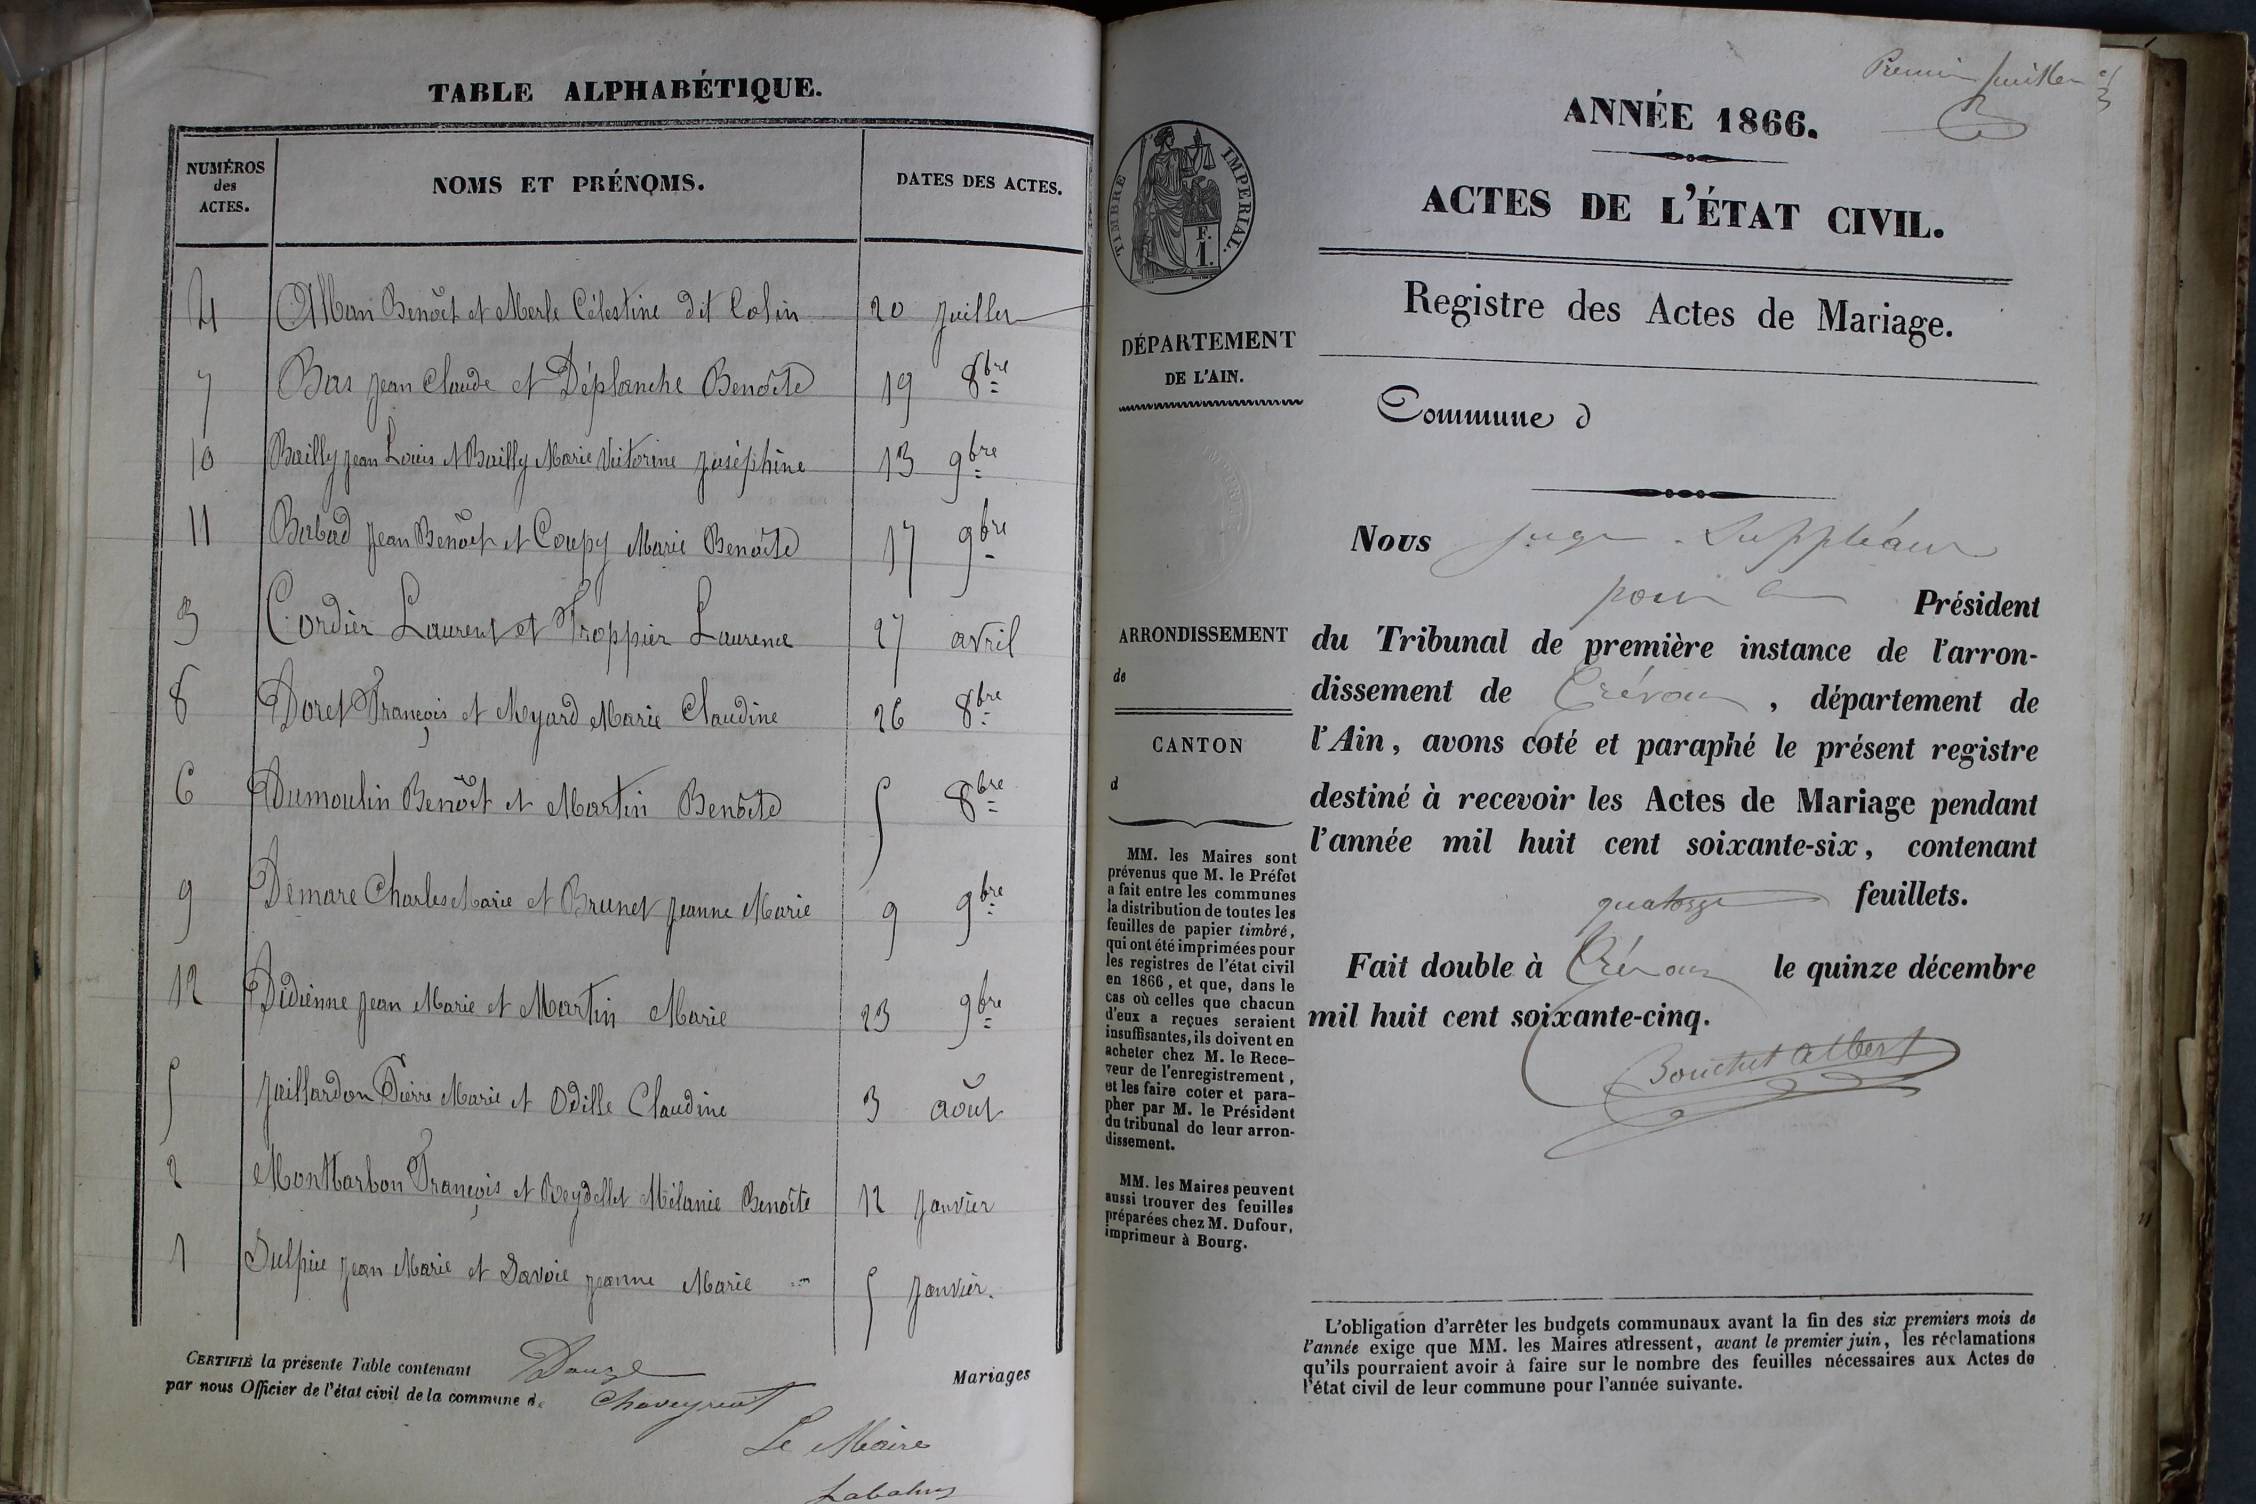 TABLE ALPHABÉTIQUE.
NUMÉROS des ACTES. NOMS ET PRÉNOMS. DATES DES ACTES.
4 Alban Benoît et Merle Célestine dit Colin 20 juillet
7 Bas jean Claude et Déplanche Benoîte 19 8bre
10 Bailly jean Louis et Bailly Marie Victorine joséphine 13 9bre
11 Babad jean Benoît et Coupy Marie Benoîte 17 9bre
3 Cordier Laurent et Troppier Laurence 27 avril
8 Doret François et Myard Marie Claudine 26 8bre
6 Dumoulin Benoît et Martin Benoîte 5 8bre
9 Démare Charles Marie et Brunet jeanne Marie 9 9bre
12 Didienne jean Marie et Martin Marie 23 9bre
5 jaillardon Pierre Marie et Odille Claudine 3 août
2 Montbarbon François et Reydellet Mélanie Benoîte 12 janvier
1 Sulpice jean Marie et Savoie jeanne Marie 5 janvier.
CERTIFIÉ la présente Table contenant Douze Mariages
par nous Officier de l'état civil de la commune de Chaveyriat
Le Maire
Premier feuillet
ANNÉE 1866.
ACTES DE L'ÉTAT CIVIL.
Registre des Actes de Mariage.
TIMBRE IMPERIAL.
F.
1.
DÉPARTEMENT
DE L'AIN.
Commune d
Nous juge Suppléant
pour le Président
du Tribunal de première instance de l'arron-
dissement de Trévoux, département de
l'Ain, avons coté et paraphé le présent registre
destiné à recevoir les Actes de Mariage pendant
l'année mil huit cent soixante-six, contenant
quatorze feuillets.
Fait double à Trévoux le quinze décembre
mil huit cent soixante-cinq.
Bouchet Albert
ARRONDISSEMENT
de
CANTON
d
MM. les Maires sont
prévenus que M. le Préfet
a fait entre les communes
la distribution de toutes les
feuilles de papier timbré,
qui ont été imprimées pour
les registres de l'état civil
en 1866, et que, dans le
cas où celles que chacun
d'eux a reçues seraient
insuffisantes, ils doivent en
acheter chez M. le Rece-
veur de l'enregistrement,
et les faire coter et para-
pher par M. le Président
du tribunal de leur arron-
dissement.
MM. les Maires peuvent
aussi trouver des feuilles
préparées chez M. Dufour,
imprimeur à Bourg.
L'obligation d'arrêter les budgets communaux avant la fin des six premiers mois de
l'année exige que MM. les Maires adressent, avant le premier juin, les réclamations
qu'ils pourraient avoir à faire sur le nombre des feuilles nécessaires aux Actes de
l'état civil de leur commune pour l'année suivante.